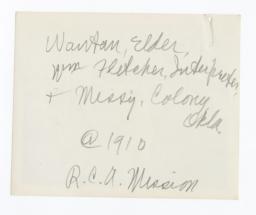 Wautan, Elder,
Wm Fletcher, Interpreter,
+ Missy, Colony
Okla.
@ 1910
R.C.A. Mission